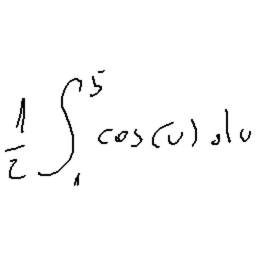 \frac{1}{2} \int_{1}^{5} \cos(u) du